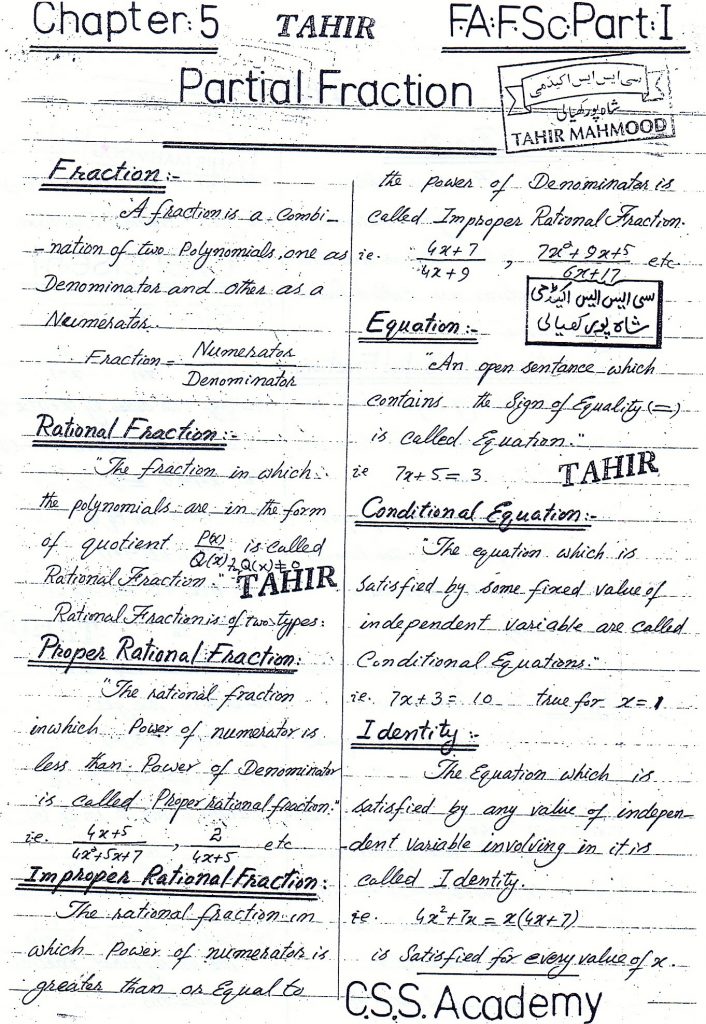 Chapter:5 TAHIR F.A:F.Sc:Part:I
Partial Fraction
سی ایس ایس اکیڈمی
شاہ پور کھیالی
TAHIR MAHMOOD
Fraction:-
A fraction is a combi-
-nation of two Polynomials, one as
Denominator and other as a
Numerator.
Fraction = Numerator
Denominator
Rational Fraction:-
"The fraction in which
the polynomials are in the form
of quotient P(x)
Q(x), Q(x)≠0 is called
Rational Fraction." TAHIR
Rational Fraction is of two types:
Proper Rational Fraction:
"The rational fraction
in which Power of numerator is
less than Power of Denominator
is called Proper rational fraction."
i.e. 4x+5 , 2 etc
4x²+5x+7 4x+5
Improper Rational Fraction:
The rational fraction in
which Power of numerator is
greater than or Equal to
the power of Denominator is
called Improper Rational Fraction.
ie. 4x+7 , 7x²+9x+5 etc
4x+9 6x+17
سی ایس ایس اکیڈمی
شاہ پور کھیالی
Equation:-
"An open sentance which
contains the Sign of Equality (=)
is called Equation."
ie 7x+5=3
TAHIR
Conditional Equation:-
"The equation which is
satisfied by some fixed value of
independent variable are called
Conditional Equations."
ie. 7x+3=10 true for x=1
Identity:-
The Equation which is
satisfied by any value of indepen-
-dent variable involving in it is
called Identity.
ie. 4x²+7x = x(4x+7)
is Satisfied for every value of x.
C.S.S. Academy